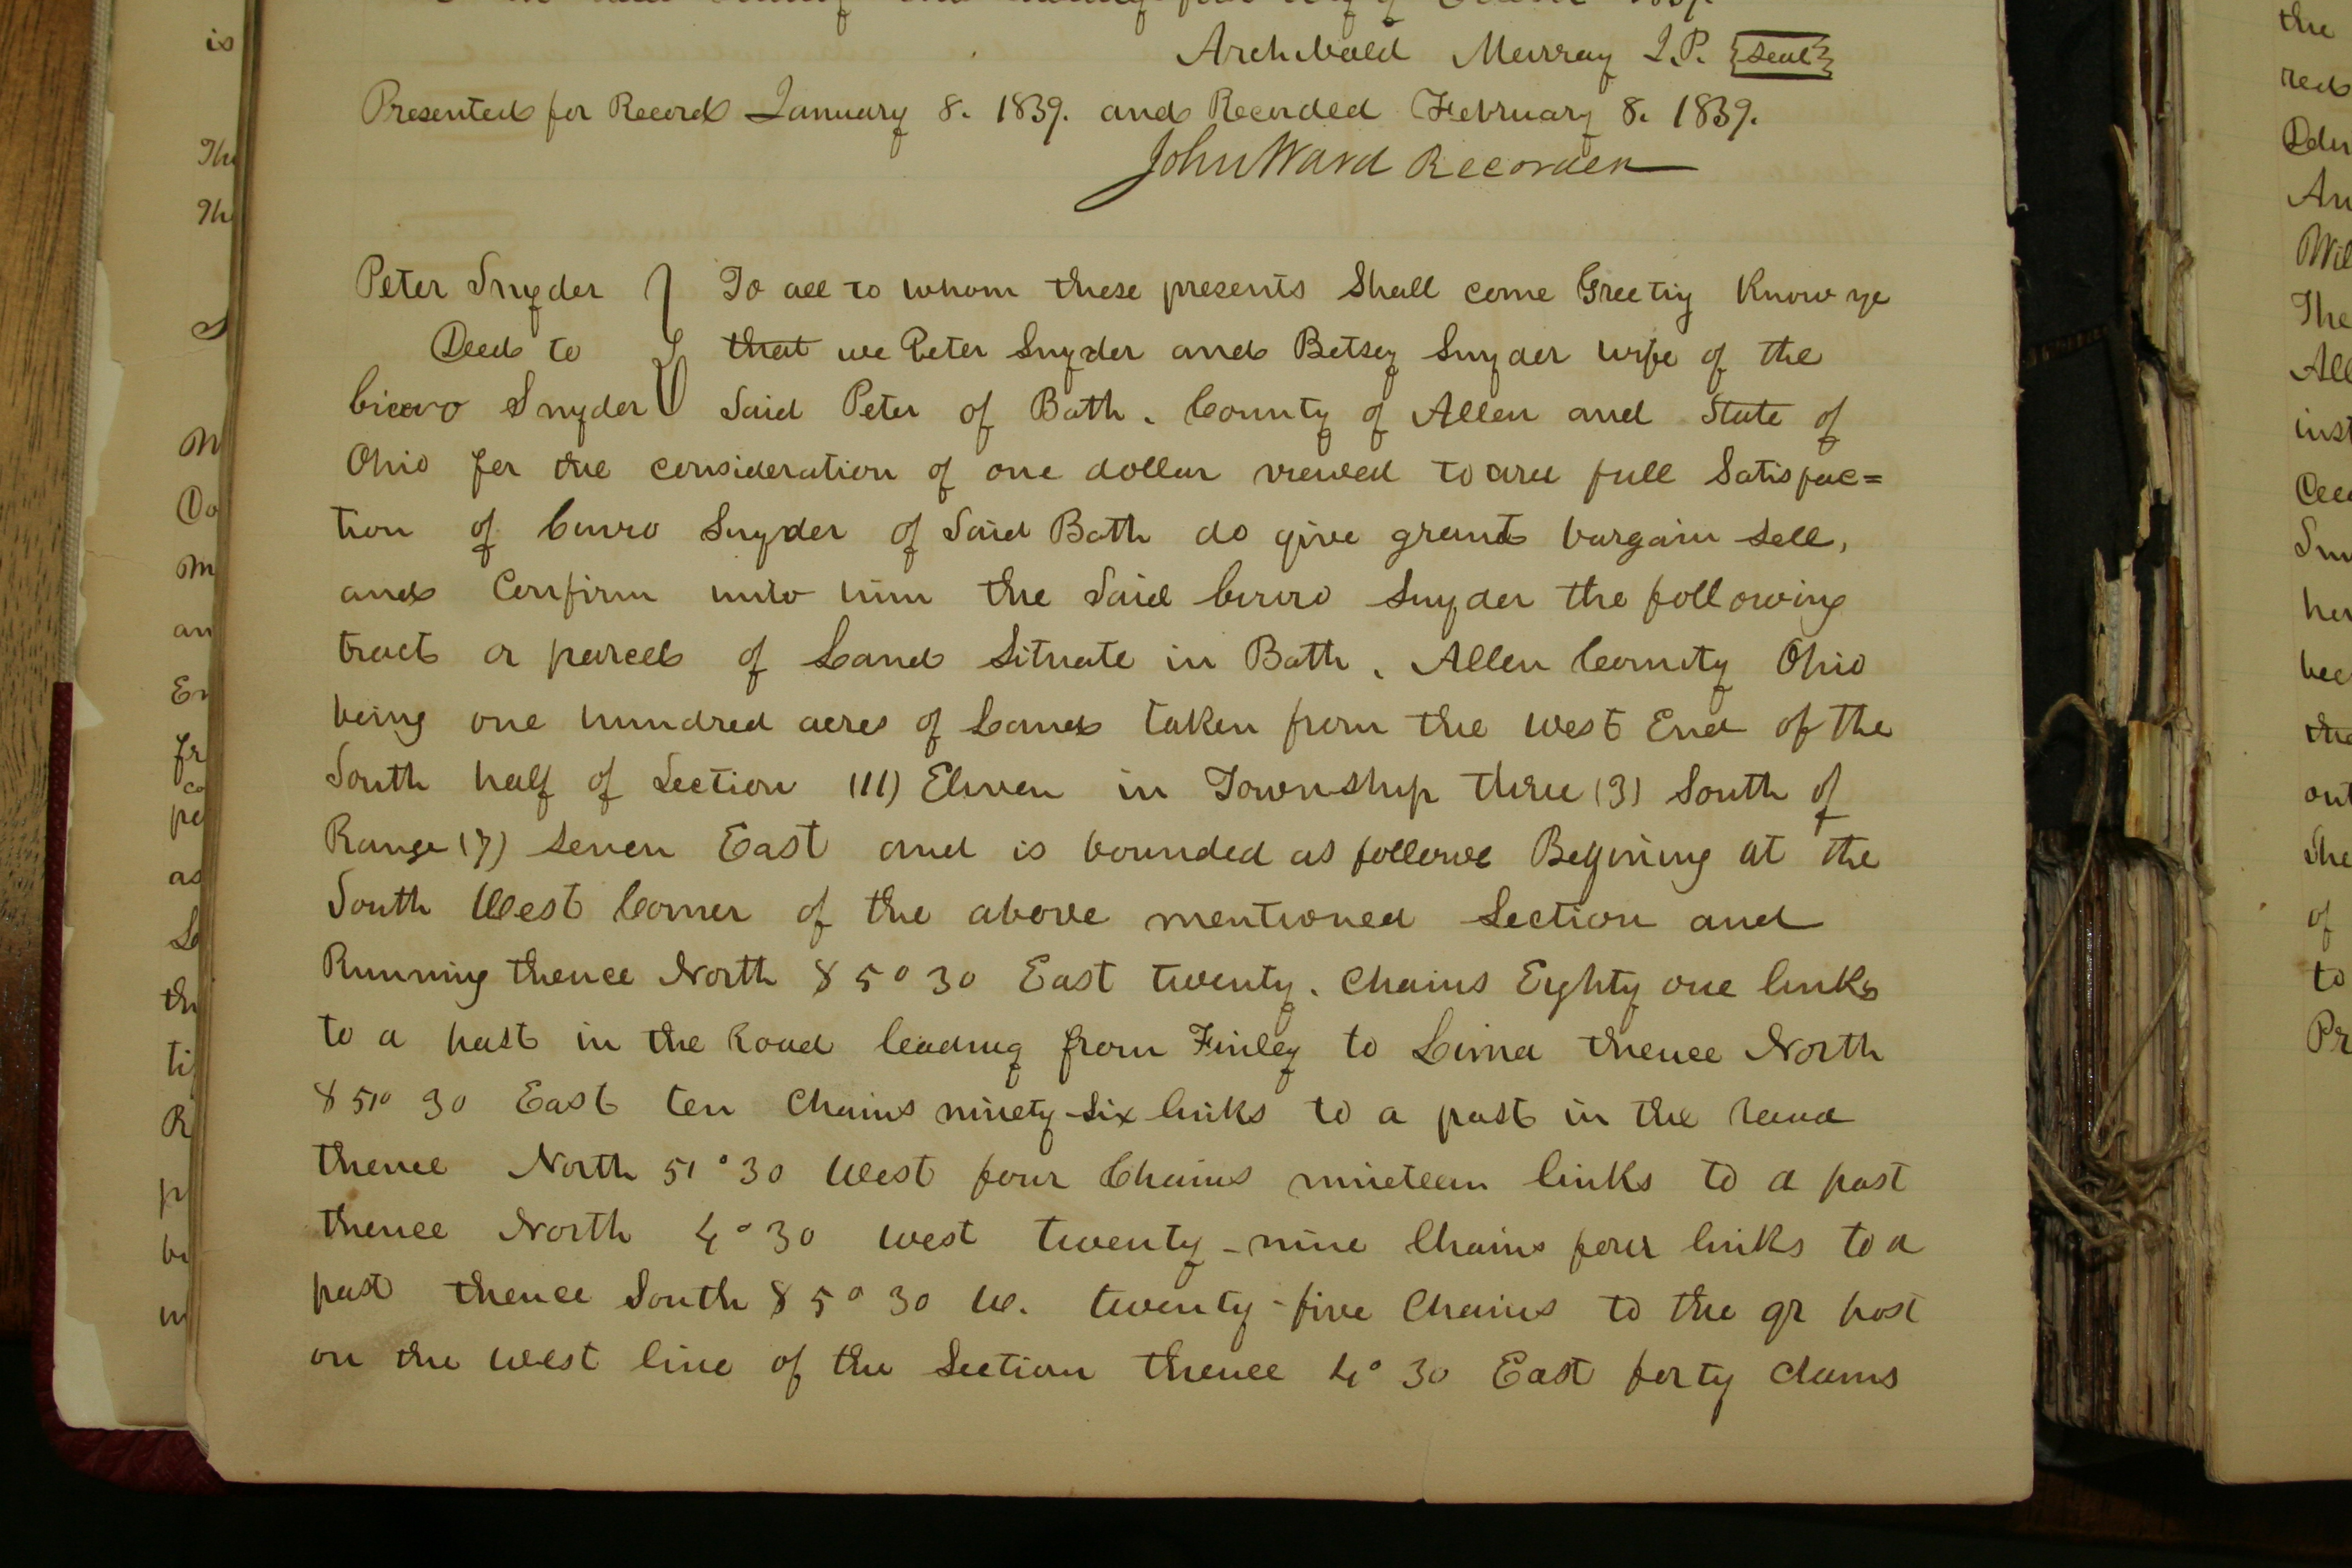 Archibald Murray J.P. {Seal}
Presented for Record January 8. 1839. and Recorded February 8. 1839.
John Ward Recorder
Peter Snyder } To all to whom these presents Shall come Greeting Know ye
Deed to } that we Peter Snyder and Betsey Snyder wife of the
Snyder } Said Peter of Bath. County of Allen and State of
Ohio for the consideration of one dollar recived to our full Satisfac=
tion of Snyder of Said Bath do give grant bargain sell,
and Confirm unto him the Said Snyder the following
tract or parcel of Land Situate in Bath. Allen County Ohio
being one hundred acres of Land taken from the west End of the
South half of Section (11) Eleven in Township three (3) South of
Range (7) Seven East and is bounded as follows Begining at the
South West Corner of the above mentioned Section and
Running thence North 85° 30 East twenty. Chains Eighty one links
to a post in the Road leading from Finley to Lima thence North
85° 30 East ten Chains ninety-six links to a post in the
thence North 51° 30 West four Chains nineteen links to a post
thence North 4° 30 west twenty-nine Chains four links to a
post thence South 85° 30 W. twenty-five Chains to the qr post
on the west line of the Section thence 4° 30 East forty Chains